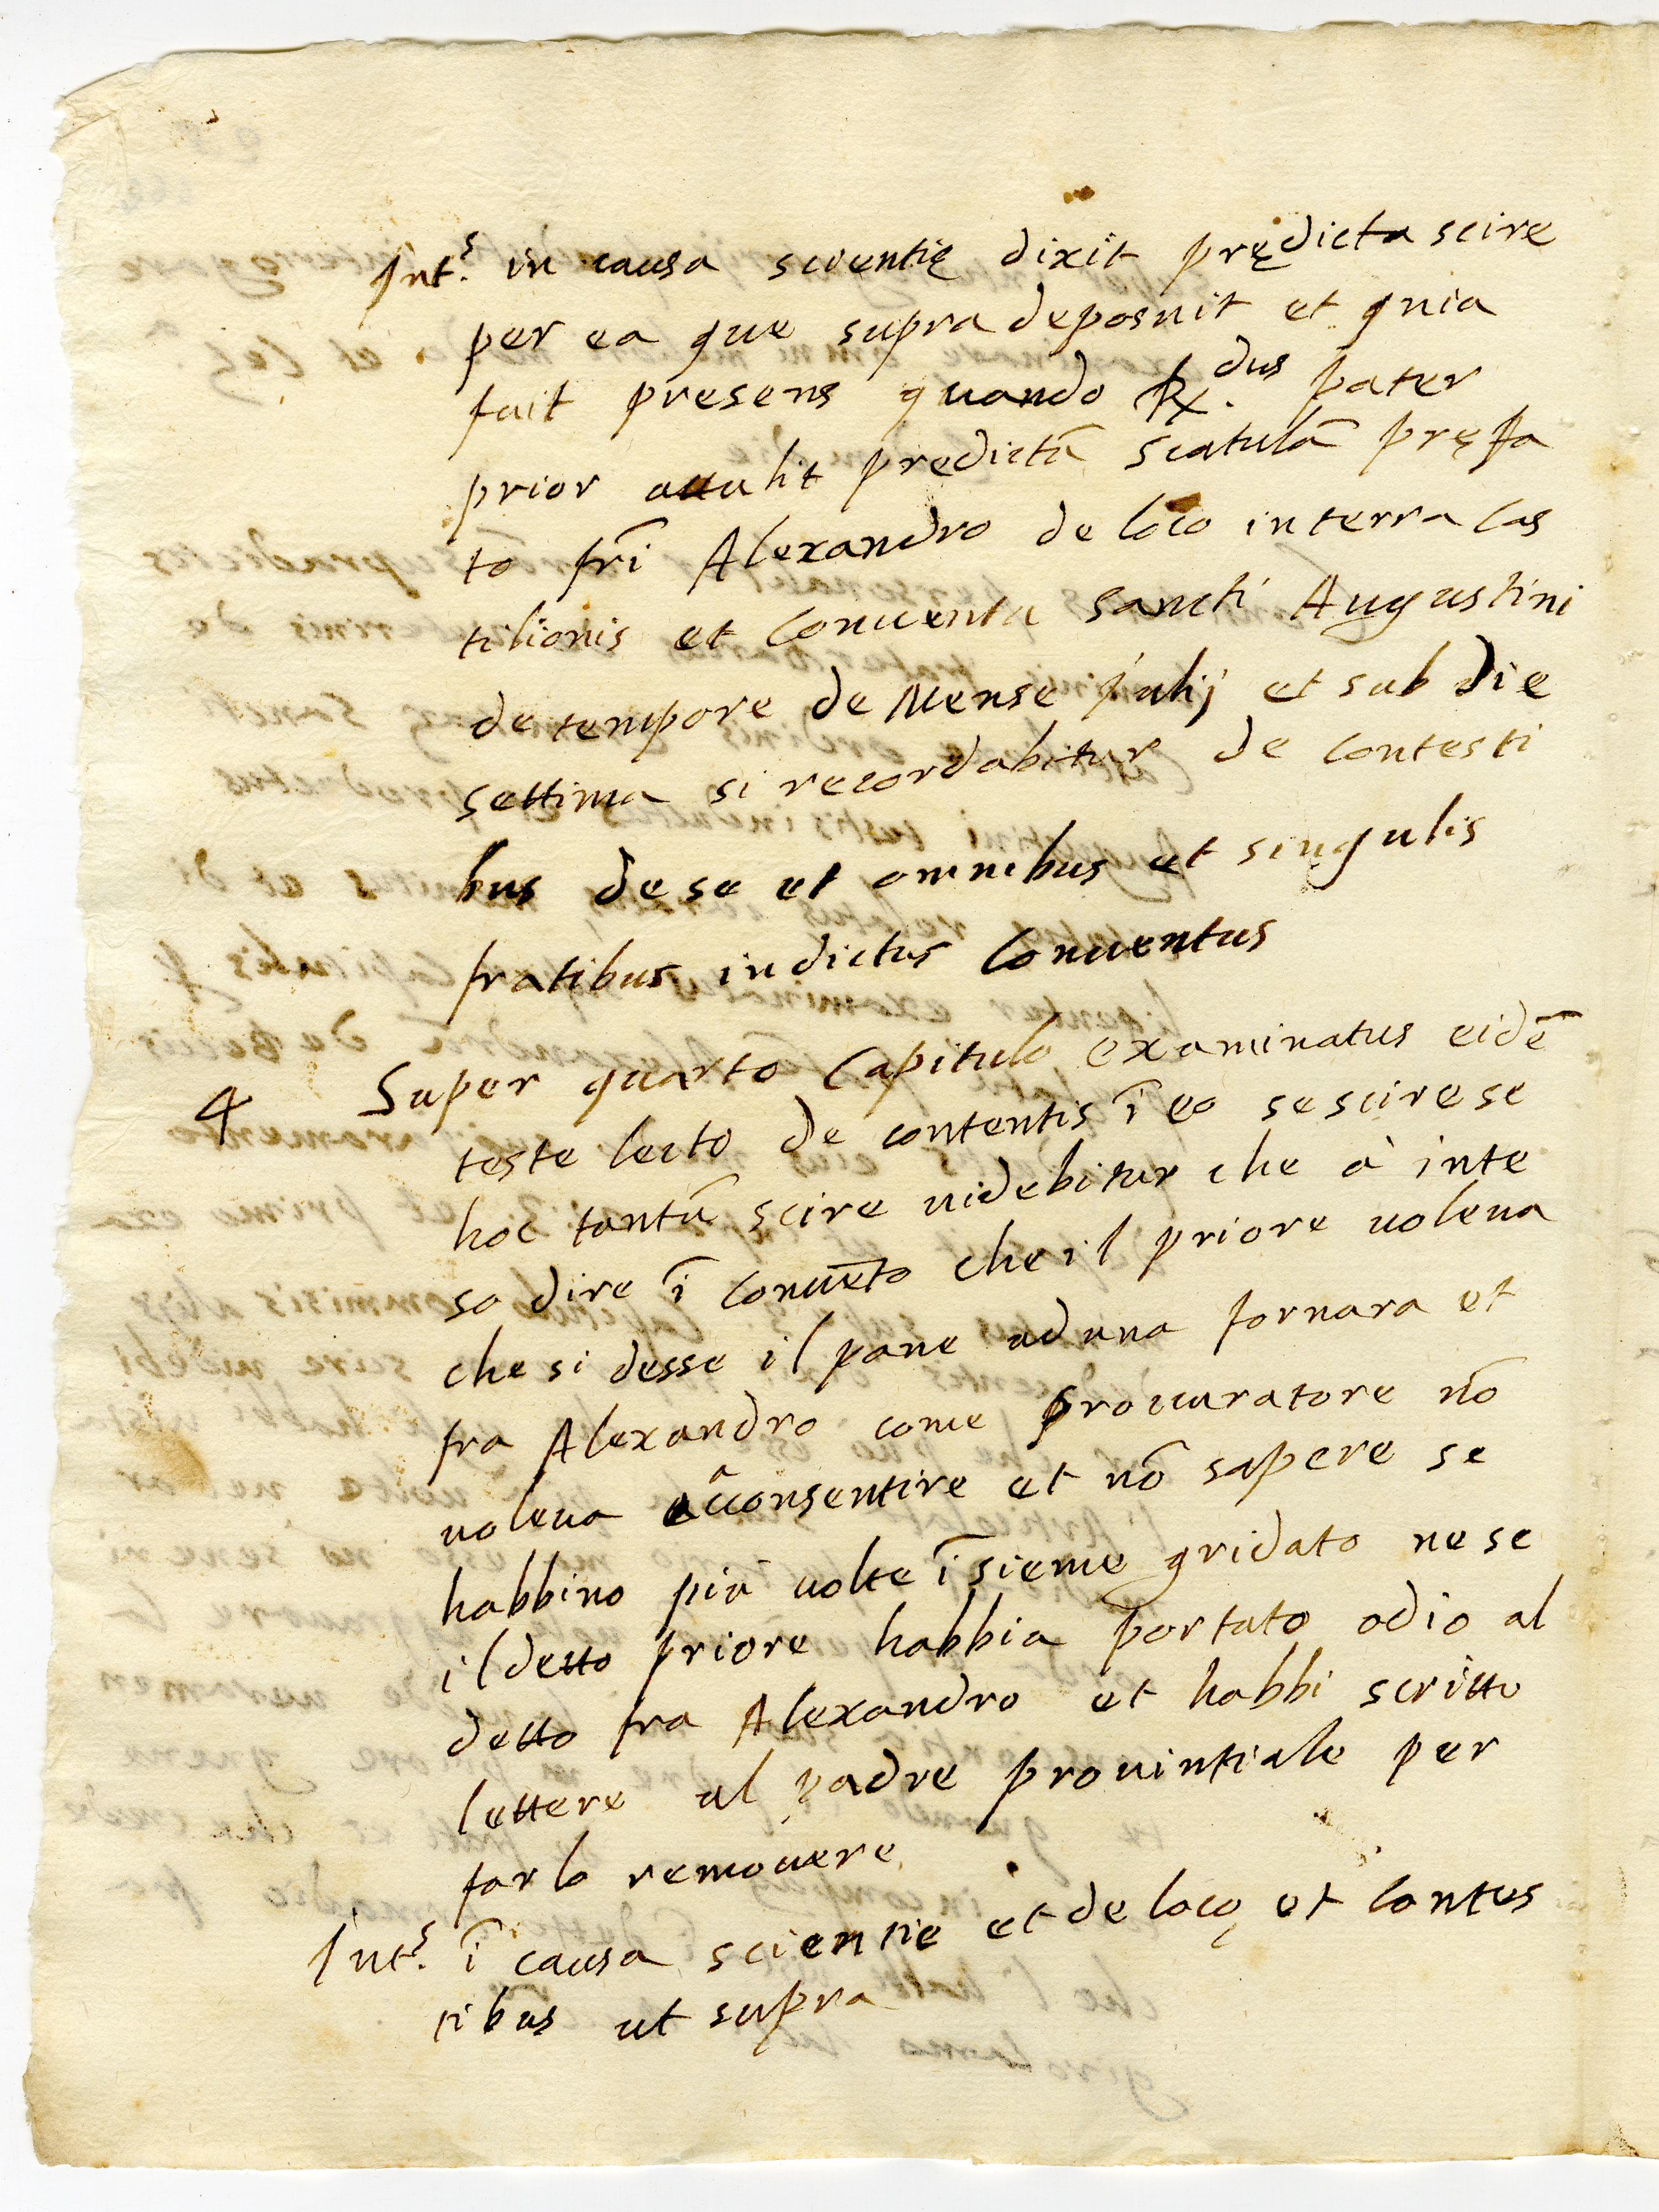 Int.s in causa scientię dixit prędicta scire
per ea que supra deposuit et quia
fuit presens quando R.dus pater
prior attulit predictā scatulā pręfa
to fr̄i Alexandro de loco in terra Cas
tilionis et Conuentu sancti Augustini
de tempore de Mense Julij et sub die
settima si recordabitur de contesti
bus de se et omnibus et singulis
fratibus in dictus Conuentus
4 Super quarto Capitulo examinatus eidē
teste lecto de contentis ī eo se scire se
hoc tantū scire uidebitur che à inte
so dire ī conuēto che il priore uoleua
che si desse il pane ad una fornara et
fra Alexandro come procuratore nō
uoleua acconsentire et nō sapere se
habbino più uolte īsieme gridato ne se
il detto priore habbia portato odio al
detto fra Alexandro et habbi scritto
lettere al padre prouintiale per
farlo remouere
Int.s ī causa scientie et de loco et contes
tibus ut supra